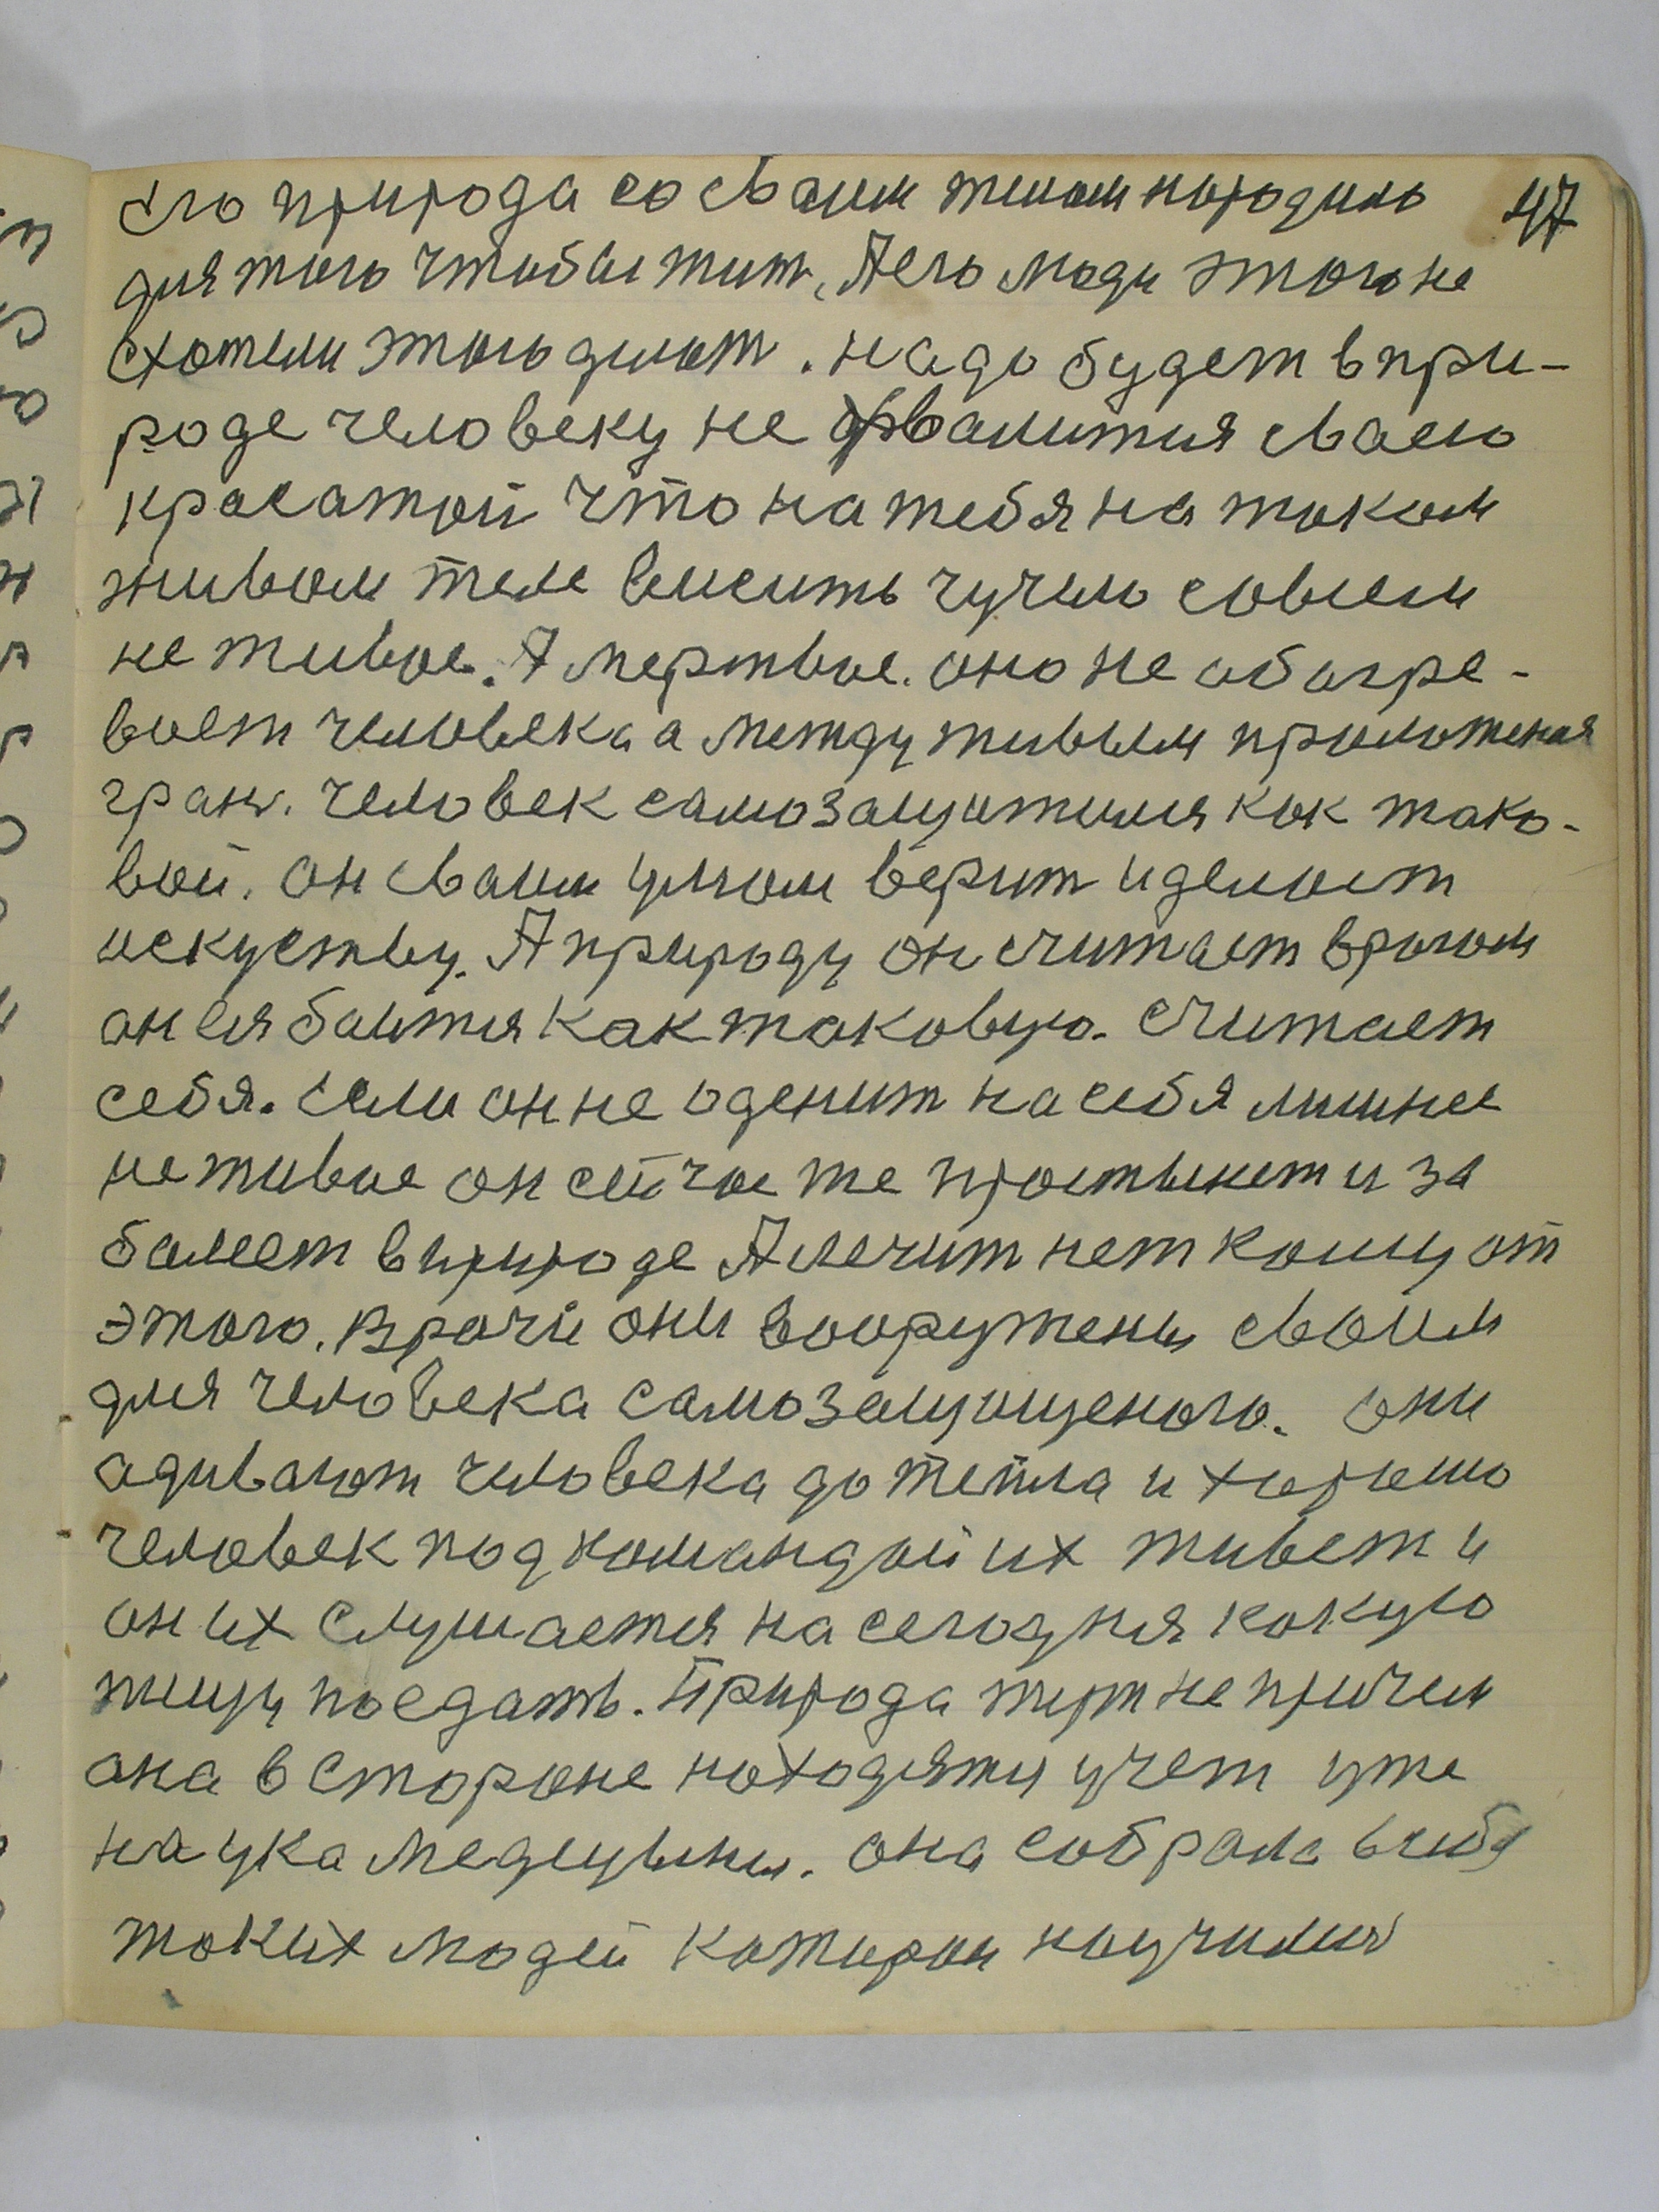 его природа со своим телом народила 47
для того чтобы жит, Аего люди этого не
схотели этого делат. надо будет в при-
роде человеку не фвалится сваею
красатой что на тебя на таком
живом теле висить чучело совсем
не живое. А мертвое. оно не абагре-
вает человека а между живым проложеная
гран. человек самозащитился как тако-
вой. он сваим умом верит и делает
искуству. А природу он считает врагом
он ея баится как таковую. считает
себя. если он не оденит на себя лишнее
не живое он сийчас же простынет и за
балеет в природе А лечит нет кому от
этого. Врачи они вооружены своим
для человека самозащищеного. они
адивают человека до тепла и хорошо
человек под командой их живет и
он их слушается на сегодня какую
пищу поедать. Природа тут не причем
она в стороне находится учет уже
наука медецына. она собрала в себя
таких людей которои научились